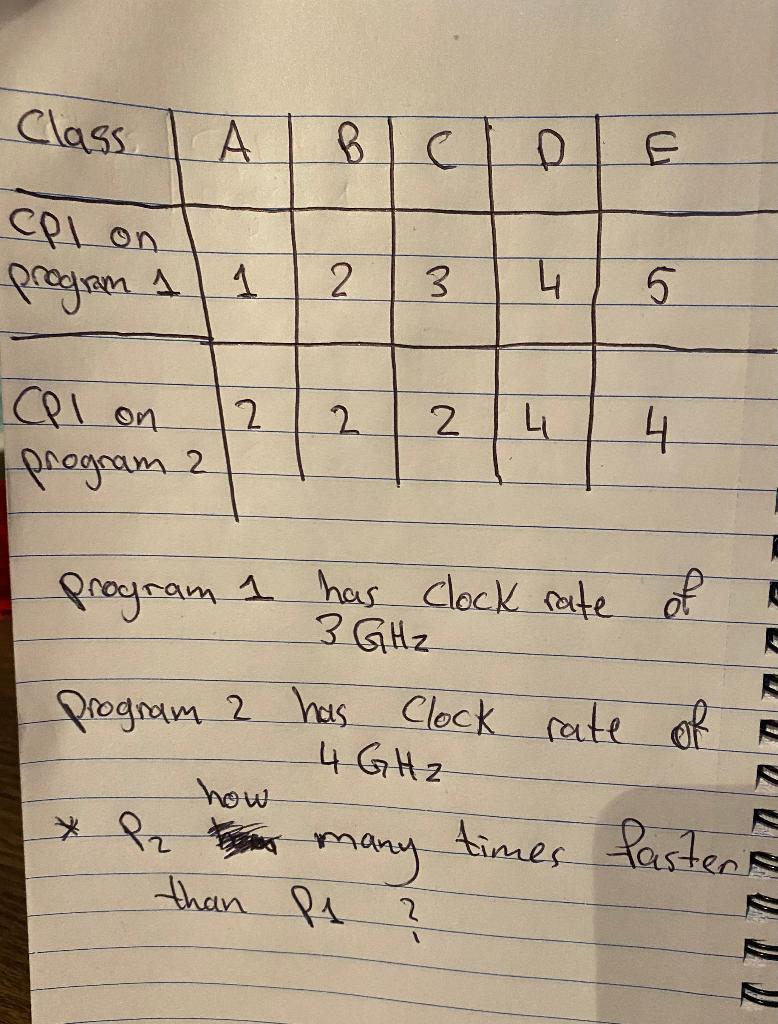 Class A B C D E
CPI on
program 1 1 2 3 4 5
CPI on 2 2 2 4 4
program 2
program 1 has Clock rate of
3 GHz
program 2 has Clock rate of
4 GHz
how
* P2 many times faster
than P1 ?